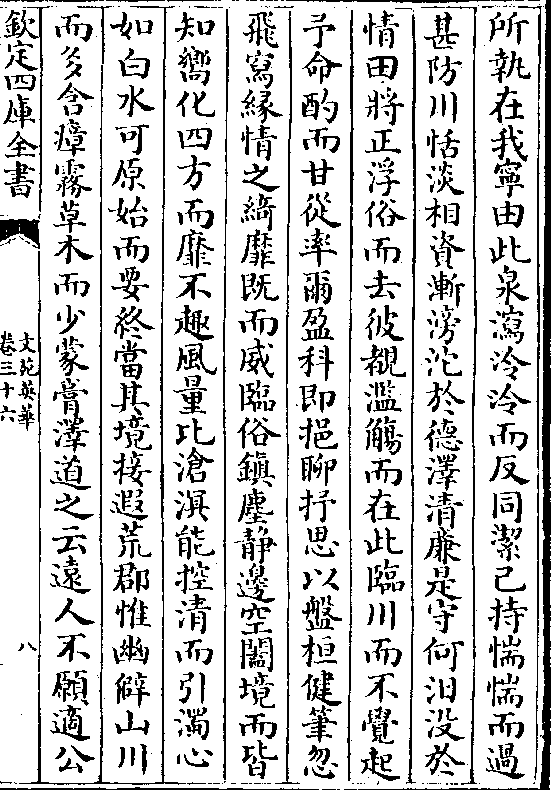 所執在我寧由此泉瀉泠泠而反同潔己持惴惴而過
甚防川恬淡相資漸滂沱於德澤清廉是守何汨没於
情田將正浮俗而去彼覩濫觴而在此臨川而不覺起
予命酌而甘從率爾盈科即挹聊抒思以盤桓健筆忽
飛寫緣情之綺靡既而威臨俗鎮塵静邊空闔境而皆
知嚮化四方而靡不趣風量比滄溟能控清而引濁心
如白水可原始而要終當其境接遐荒郡惟幽僻山川
而多含瘴霧草木而少蒙膏澤道之云遠人不願適公
欽定四庫全書
文苑英華
卷三十六
八